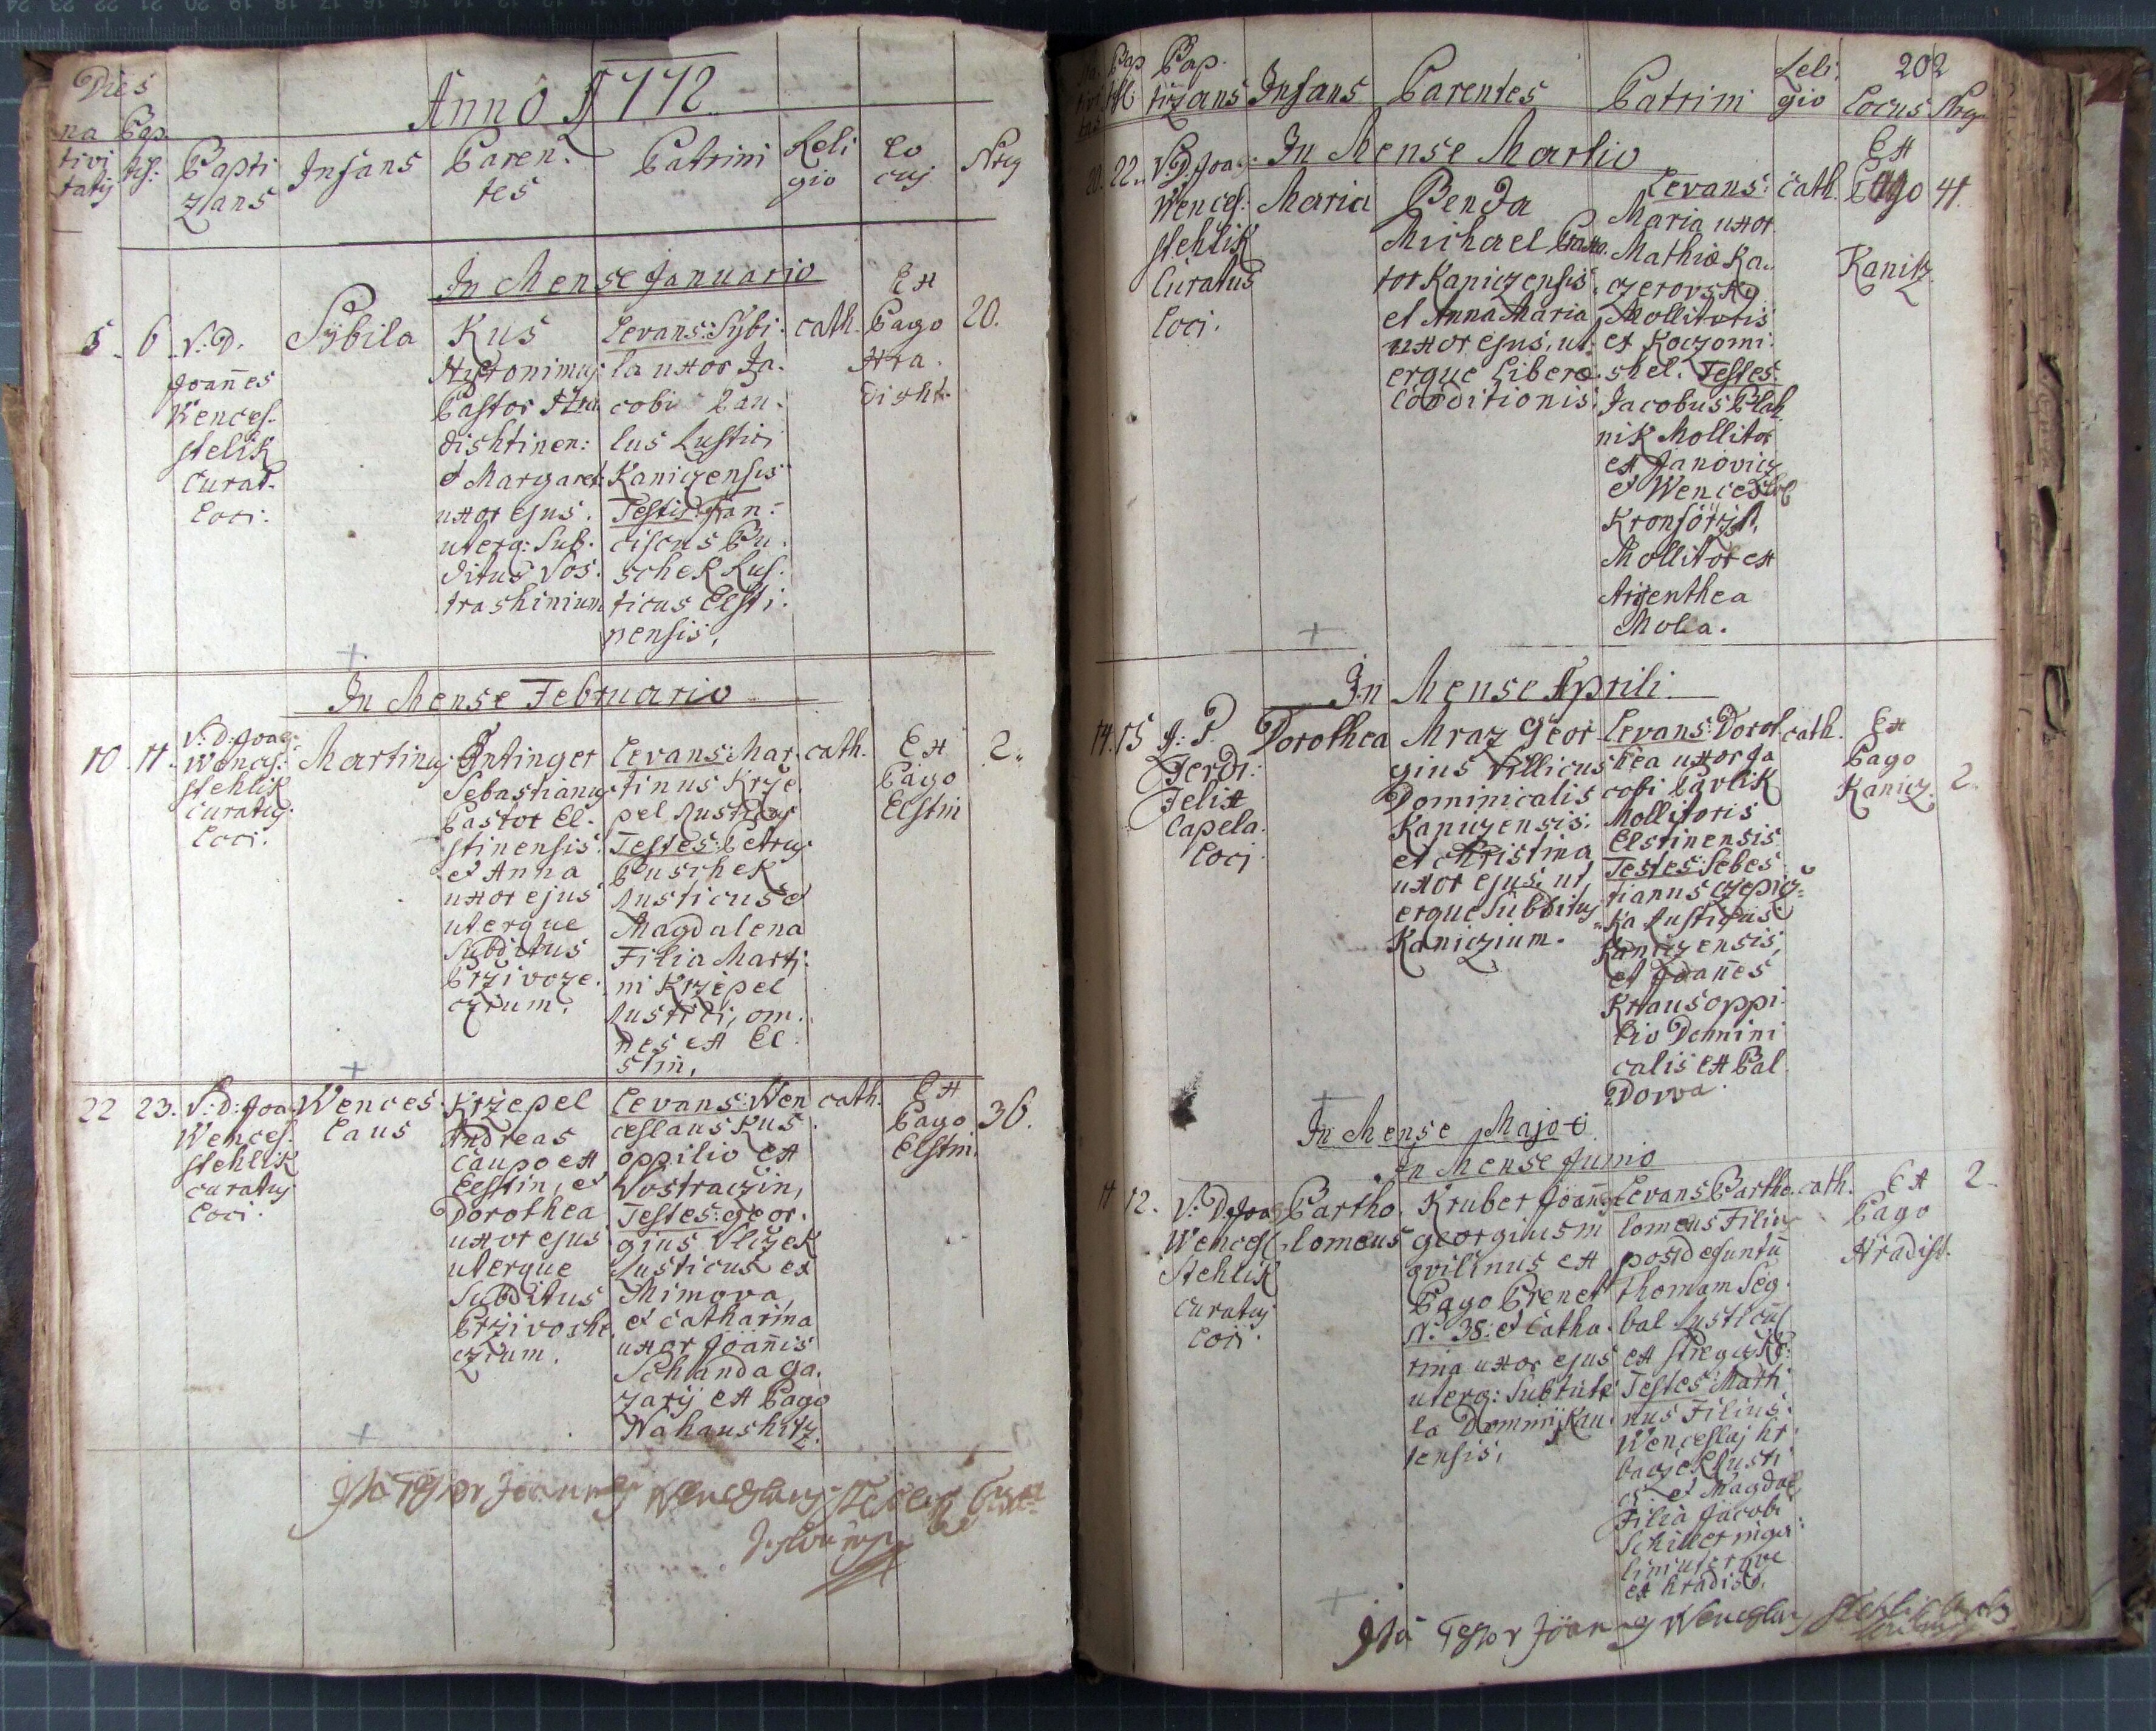 Anno 1772.
Dies
na Bap
tivi tis:
tatis
Bapti
zans
Infans
Paren:
tes
Patrini
Reli
gio
Lo
cus
Nrus
In Mense Januario
5. 6. V: D.
Joannes
Wences.
stelik
Curat.
Loci.
Sÿbila
Kus
Pastor Hra
dishtinen:
et Margaret:
uxor ejus.
uterq: Sub.
ditus Vos.
trashinium
Levans: Sÿbi.
la uxor Ja.
cobi Pau.
lus Rustici
Kaniczensis
Testis: Fran:
ciscus Pu.
schek Rus.
ticus Elsti.
nensis.
cath.
Ex
Pago
Hra.
disht.
20.
In Mense Februario
10. 11. V: D: Joan.
Wences:
stehlik
Curatus
Loci.
Martinus
Sebastianus
Pastor El.
stinensis.
et Anna
uxor ejus
uterque
Subditus
Przivoze.
czium.
Levans: Mar.
tinus Krze.
pel Rusticus
Testes: Petrus
Puschek
Rusticus et
Magdalena
Filia Marti.
ni Krzepel
Rustici, om.
nes ex El.
stin.
cath.
Ex
Pago
Elstin
2.
22 23. V: D: Joan
Wences.
stehlik
curatus
Loci.
Wences.
laus
Krzepel
Andreas
Caupo ex
Elstin, et
Dorothea
uxor ejus
uterque
Subditus
Przivoshe
czium.
Levans: Wen
ceslaus Kus
oppilio ex
Vostraczin,
Testes: Geor.
gius Vlizek
Rusticus ex
Mimova,
et Catharina
uxor Joannis
Schlanda Ga.
zarij ex Pago
Nahaushitz.
cath.
Ex
Pago
Elstin.
36.
Ita Testor Joannes Wenceslaus Stehlik
202
Na. Bap
tivi tis:
tas
Bap.
tizans
Infans
Parentes
Patrini
Reli.
gio
Locus
Nrus
In Mense Martio
20. 22. V: D. Joan.
Wences:
stehlik
Curatus
Loci.
Maria
Benda
Michael
tor Kaniczensis.
et Anna Maria
uxor ejus, ut
erque Liberæ
Conditionis
Levans:
Maria uxor
Mathiæ Ka.
czerovskÿ
Mollitoris
ex Koczomi
shel. Testes.
Jacobus Blah
nik Mollitor
ex Janovicz
et Wencesl
Mollitor ex
Argenthea
Mola.
cath.
Ex
Pago
Kanitz
41
In Mense Aprili.
14. 15 J: P.
Ferdi:
Felix
Capela.
Loci.
Dorothea
Mraz Geor
gius Villicus
Dominicalis
Kaniczensis.
et Christina
uxor ejus, ut
erque Subditus
Kaniczium.
Levans: Dorot
hea uxor Ja
cobi Pavlik
Mollitoris
Elstinensis
Testes: Sebes
tianus Czepicz=
ka Rusticus
Kaniczensis,
et Joannes
Kraus oppi.
lio Domini
calis ex Bal
dowa.
cath.
Ex
Pago
Kanicz.
2.
In Mense Majo
In Mense Junio
11 12. V: D. Joan
Wencesl
Stehlik
Curatus
Loci.
Bartho.
lomeus
Kruber Joan
georgius in
qvilinus ex
Pago Grenet
N. 38. et Catha.
rina uxor ejus
uterq:
tensis.
Levans Bartho.
lomeus Filius
post defuntũ
Thomam Seg
bal
Testes: Mathi
nus Filius
Wenceslaj
et Magdal
Filia Jacobi
uterqve
ex hradist.
cath.
Ex
Pago
Hradist.
2.
Ita Testor Joannes Wenceslaus Stehlik